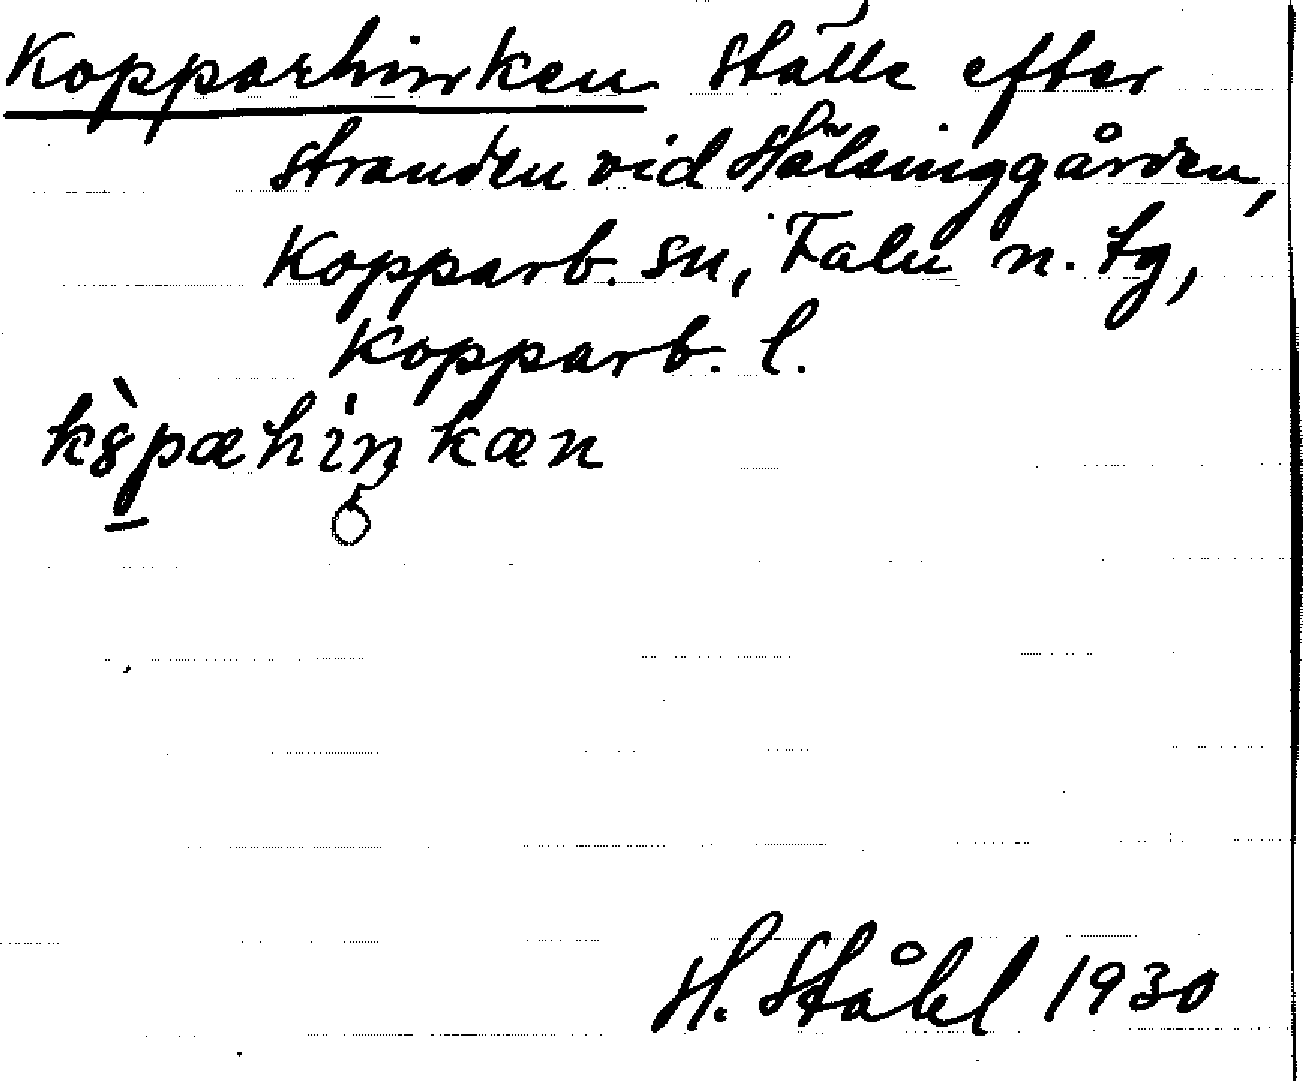 Kopparhinken Ställe efter
stranden vid Hälsinggården,
Kopparb. sn, Falu n. tg,
Kopparb. l.
kȣ̀pæhiŋkæn
H. Ståhl 1930